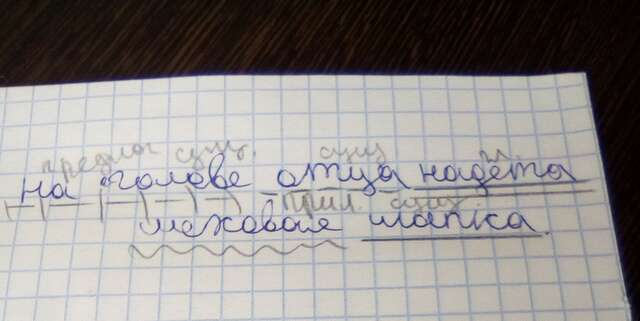 предлог сущ. сущ гл.
на голове отца надета
прил. сущ.
меховая шапка.